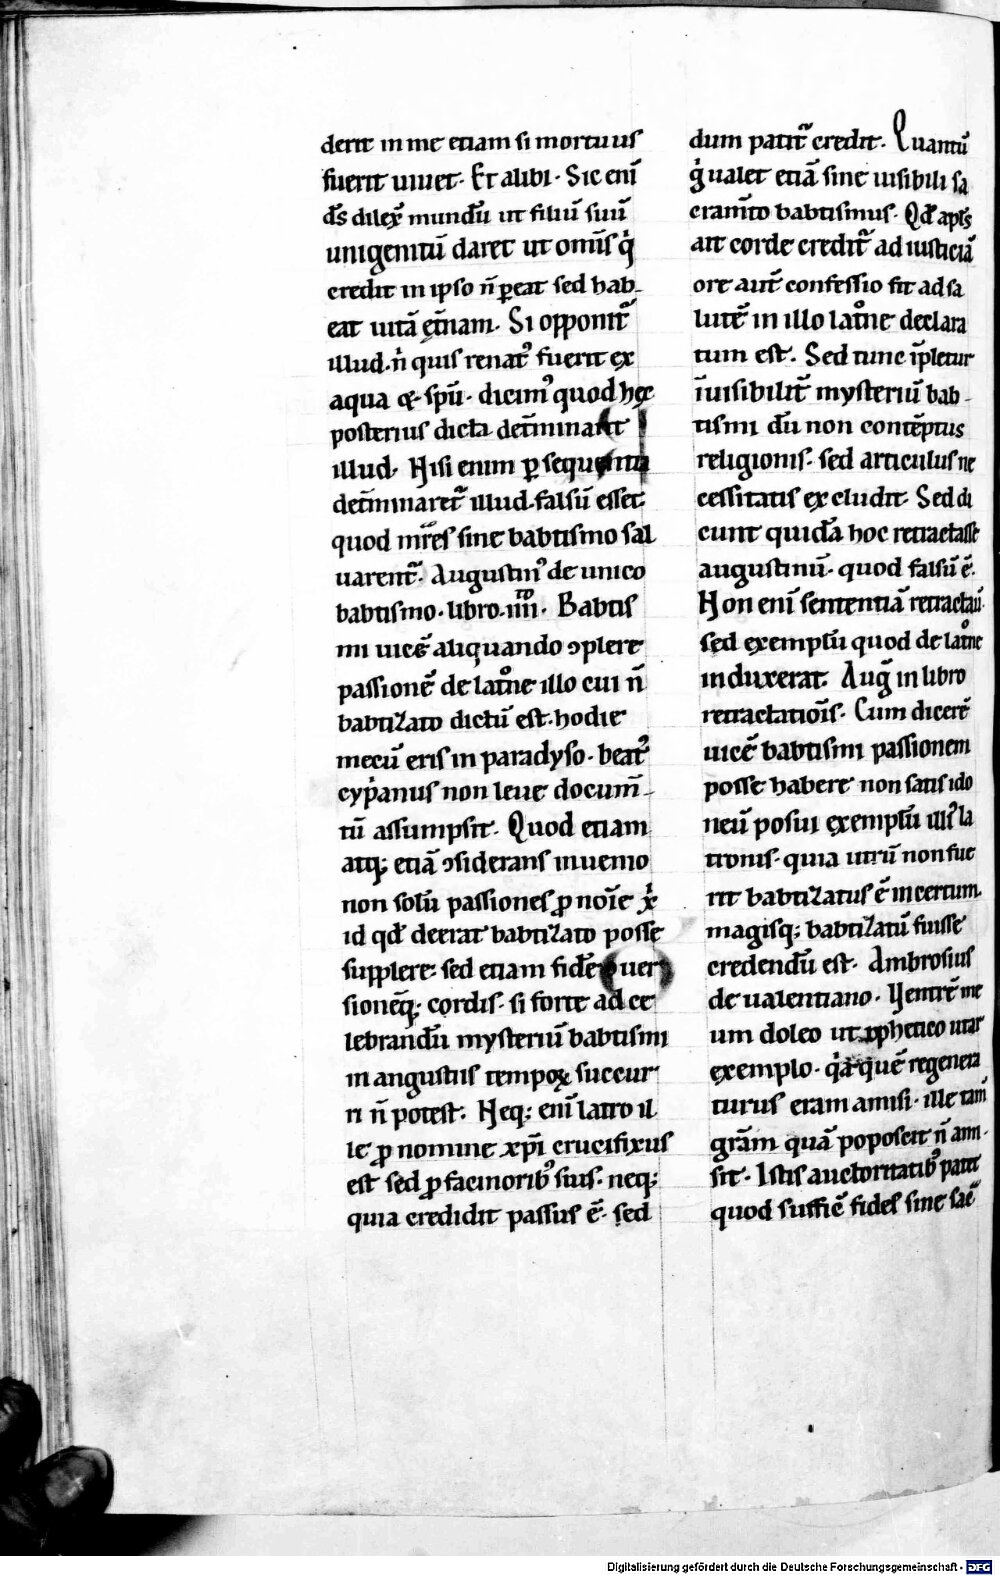 derit in me etiam si mortuus
fuerit uiuet. Et alibi. Sic eni̅
d̅s dilex̅ mundu̅ ut filiu̅ suu̅
unigenitu̅ daret ut omi̅s qͥ
credit in ipso n̅ ꝑeat sed hab-
eat uita̅ et̅nam. Si opponit᷑
illud. nͥ quis renatꝰ fuerit ex
aqua & sp̅u. dicimꝰ quod hęc
posterius dicta det̅minant
illud. Nisi enim ꝑ sequentia
det̅minaret᷑ illud. falsu̅ esset
quod mr̅es sine babtismo sal
uarent᷑. Augustinꝰ de unico
babtismo. libro. iiiiͭͦ. Babtis
mi uice̅ aliquando ꝯplere
passione̅ de latͦne illo cui n̅
babtizato dictu̅ est. hodie
mecu̅ eris in paradyso. beatꝰ
cypͥanus non leue docum̅-
tu̅ assumpsit. Quod etiam
atq; etia̅ ꝯsiderans inuenio
non solu̅ passiones ꝓ noi̅e xͥ
id qd̅ deerat babtizato posse
supplere. sed etiam fide̅ ꝯuer
sione̅q; cordis. si forte ad ce
lebrandu̅ mysteriu̅ babtismi
in angustiis tempoꝝ succur
ri n̅ potest. Neq; eni̅ latro il
le ꝓ nomine xp̅i crucifixus
est sed ꝓ facinoribꝰ suis. neq;
quia credidit passus e̅. sed
dum patit᷑ credit. Quantu̅
gͥ ualet etia̅ sine uisibili sa
cram̅to babtismus. Qd̅ apl̅s
ait corde credit᷑ ad iusticia̅
ore aut̅ confessio fit ad sa
lute̅ in illo latͦne declara
tum est. Sed tunc i̅pletur
i̅uisibilit̅ mysteriu̅ bab-
tismi cu̅ non conte̅ptus
religionis. sed articulus ne
cessitatis excludit. Sed di
cunt quida̅ hoc retractasse
augustinu̅. quod falsu̅ e̅.
Non eni̅ sententia̅ retractau̅.
sed exemplu̅ quod de latͦne
induxerat. Aug̅ in libro
retractatiois̅. Cum dicere̅
uice̅ babtismi passionem
posse habere non satis ido
neu̅ posui exemplu̅ illiꝰ la
tronis. quia utru̅ non fue
rit babtizatus e̅ incertum.
magisq; babtizatu̅ fuisse
credendu̅ est. Ambrosius
de ualentiano. Uentre̅ me
um doleo ut ꝓphetico utar
exemplo. qͥa que̅ regenera
turus eram amisi. ille tam̅
gra̅m qua̅ poposcit n̅ ami
sit. Istis auctoritatibꝰ patit
quod suffic̅ fides sine sac̅
Digitalisierung gefördert durch die Deutsche Forschungsgemeinschaft - DFG